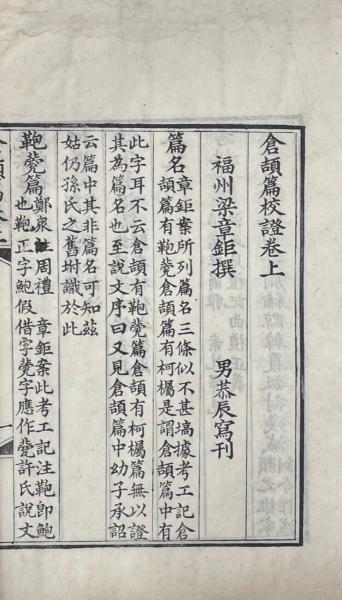 倉頡篇校證卷上
福州梁章鉅撰　男恭辰寫刊
篇名
章鉅案所列篇名三條似不甚塙據考工記倉
頡篇有鞄䒺篇倉頡篇有柯欘是謂倉頡篇中有
此字耳不云倉頡有鞄䒺篇倉頡有柯欘篇無以證
其為篇名也至說文序曰又見倉頡篇中幼子承詔
云篇中其非篇名可知茲
姑仍孫氏之舊坿識於此
鞄䒺篇
鄭衆註周禮　章鉅案此考工記注鞄即鮑
也鞄正字鮑假借字䒺字應作㼱許氏說文